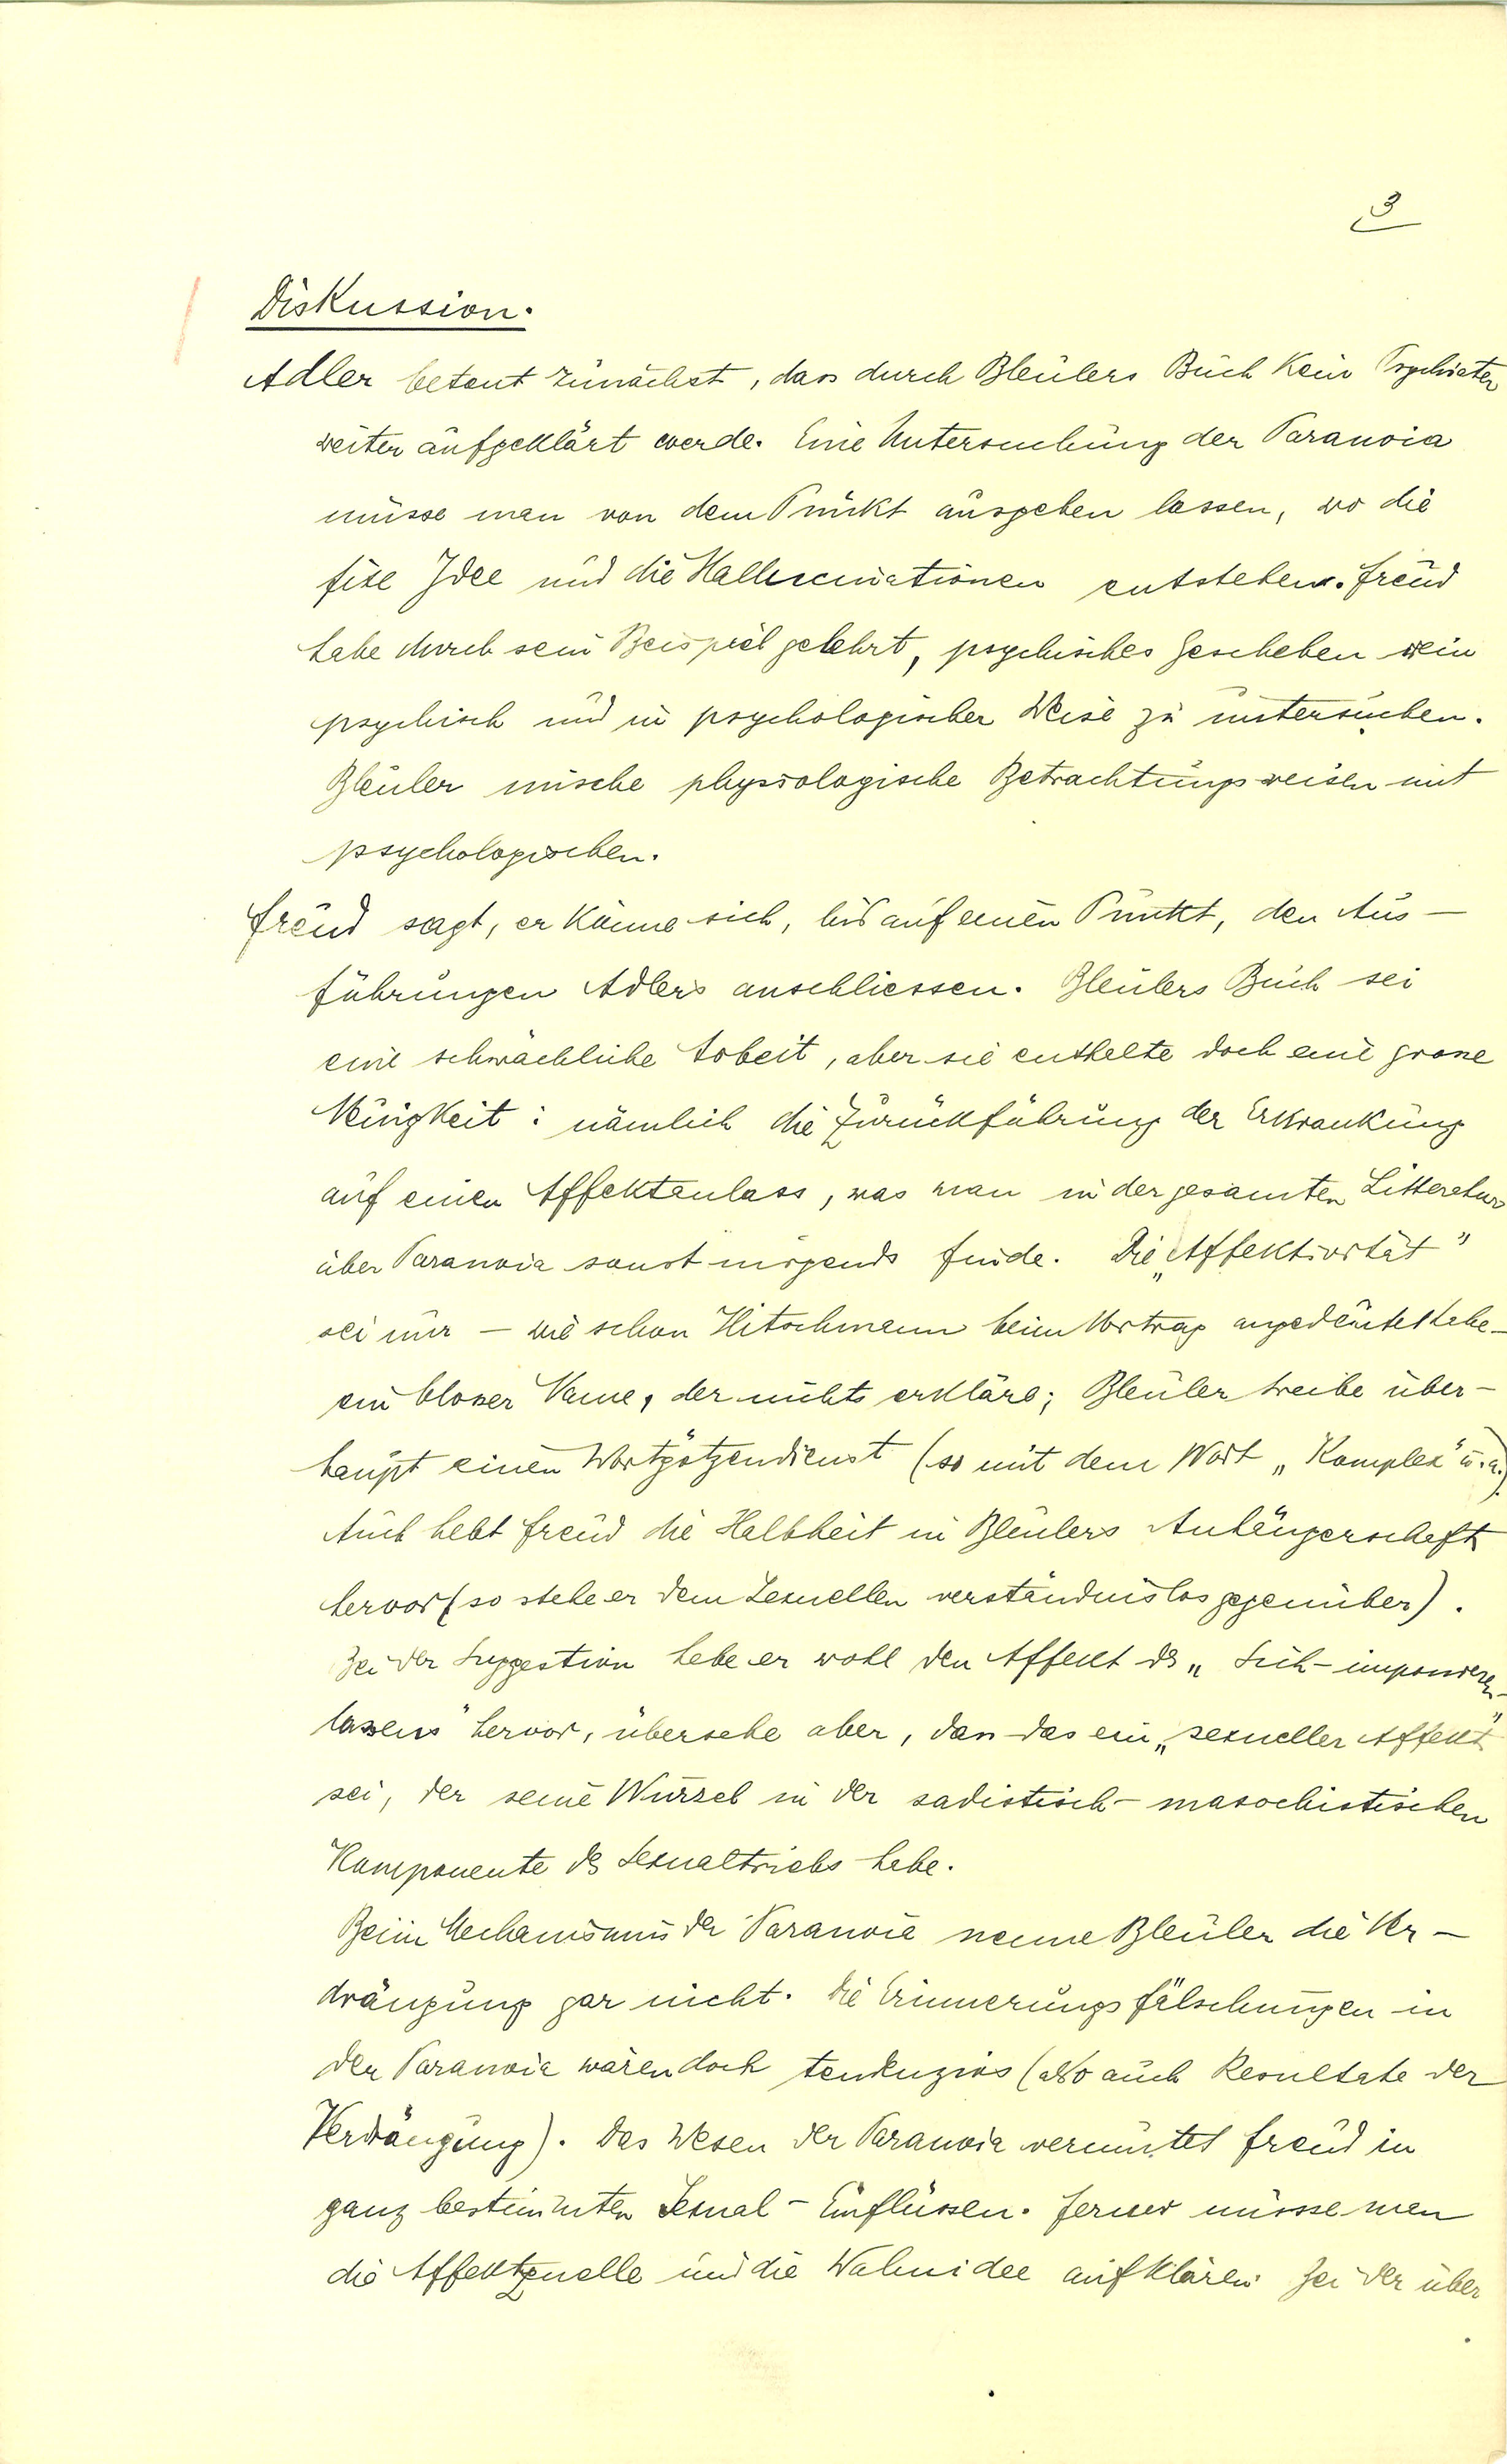 3
Diskussion.
Adler betont zunächst, dass durch Bleulers Buch kein Psychiater
weiter aufgeklärt werde. Eine Untersuchung der Paranoia
müsse man von dem Punkt ausgehen lassen, wo die
fixe Idee und die Hallucinationen entstehen. Freud
habe durch sein Beispiel gelehrt, psychisches Geschehen rein
psychisch und in psychologischer Weise zu untersuchen.
Bleuler mische physiologische Betrachtungsweisen mit
psychologischen.
Freud sagt, er könne sich, bis auf einen Punkt, den Aus-
führungen Adlers anschliessen. Bleulers Buch sei
eine schwächliche Arbeit, aber sie enthalte doch eine grosse
Neuigkeit: nämlich die Zurückführung der Erkrankung
auf einen Affektanlass, was man in der gesamten Litteratur
über Paranoia sonst nirgends finde. Die „Affektivität"
sei nur – wie schon Hitschmann beim Vortrag angedeutet habe –
ein blosser Name, der nichts erkläre; Bleuler treibe über-
haupt einen Wortgötzendienst (so mit dem Wort „Komplex" u. a.)
Auch hebt Freud die Halbheit in Bleulers Anhängerschaft
hervor (so stehe er dem Sexuellen verständnislos gegenüber).
Bei der Suggestion hebe er wohl den Affekt des „Sich-imponieren-
lassens" hervor, übersehe aber, dass das ein „sexueller Affekt"
sei, der seine Wurzel in der sadistisch-masochistischen
Komponente des Sexualtriebs habe.
Beim Mechanismus der Paranoia nenne Bleuler die Ver-
drängung gar nicht. Die Erinnerungsfälschungen in
der Paranoia wären doch tendenziös (also auch Resultate der
Verdrängung). Das Wesen der Paranoia vermutet Freud in
ganz bestimmten Sexual-Einflüssen. Ferner müsse man
die Affektquelle und die Wahnidee aufklären. Bei der über